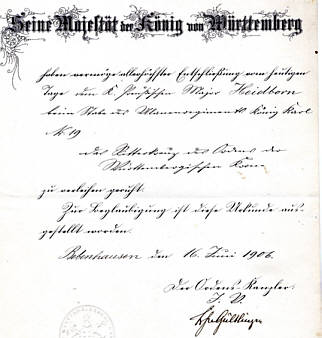 Seine Majestät der König von Württemberg
haben vermöge allerhöchster Entschließung vom heutigen
Tage dem K. Preußischen Major Heidborn
beim Stabe des Ulanenregiments König Karl
N. 19
das Ritterkreuz des Ordens der
Württembergischen Krone
zu verleihen geruht.
Zur Beglaubigung ist diese Urkunde aus-
gestellt worden.
Bebenhausen den 16. Juni 1906.
Der Ordens Kanzler:
I. V.
Gültlingen